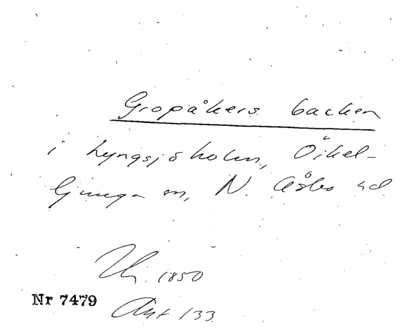 Gropåkers backen
i Lyngsjöholm, Örkel-
ljunga sn, N. Åsbo hd
1850
Nr 7479
133